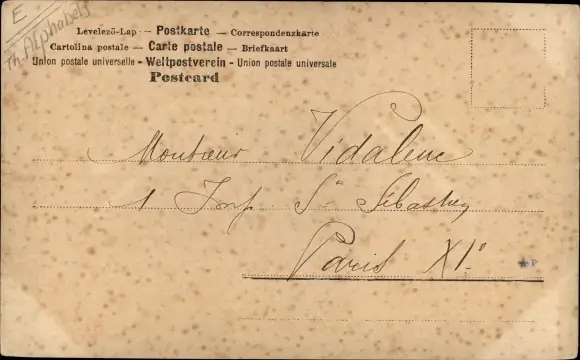 E
Th. Alphabets
Levelezö-Lap — Postkarte — Correspondenzkarte
Cartolina postale — Carte postale — Briefkaart
Union postale universelle - Weltpostverein - Union postale universale
Postcard
Monsieur Vidalenc
1 Imp. St Sébastien
Paris XIe
P